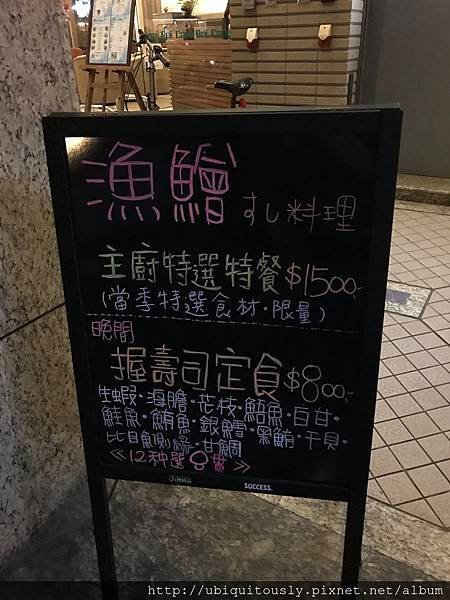 漁鱠 すし料理
主廚特選特餐 $1500.
(當季特選食材·限量)
晚間
握壽司定食 $800.
生蝦·海膽·花枝·鮭魚·白甘·
鮭魚·鯛魚·銀鱈·黑鮪·干貝·
比目魚側緣·甘鯛
≪12种選8貫≫
SUCCESS.
http://ubiquitously.pixnet.net/album